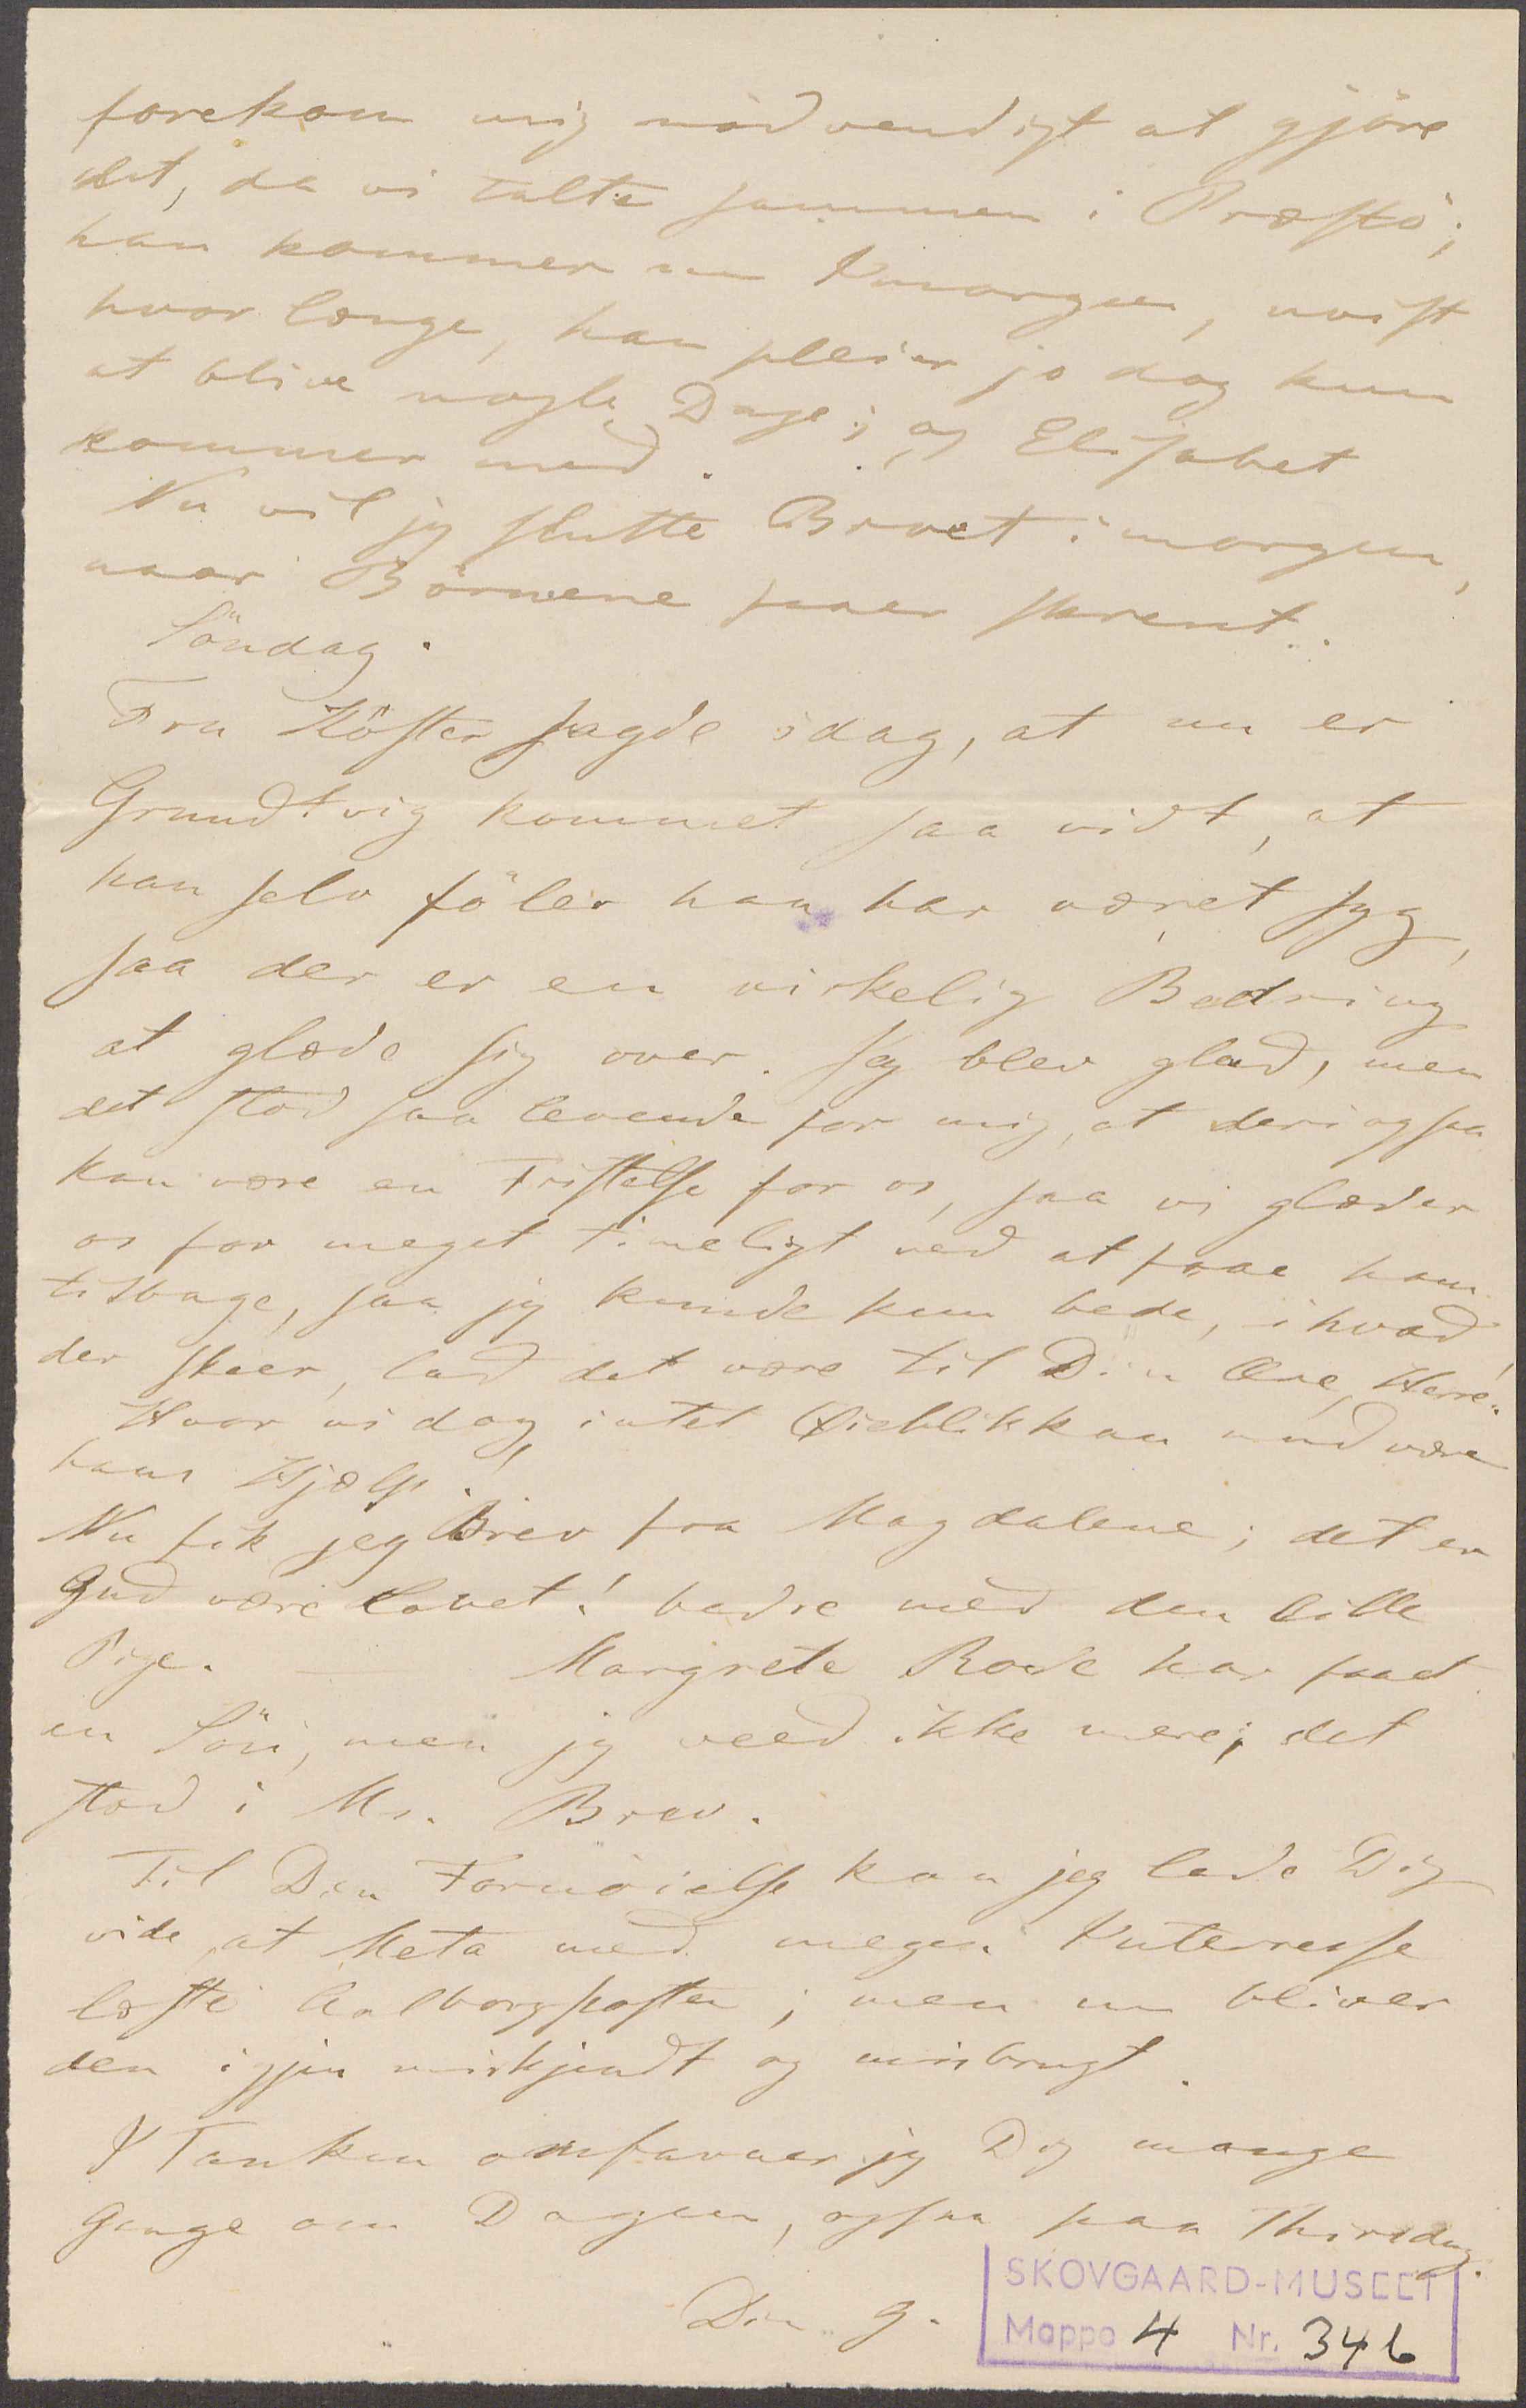 forekom mig nödvendigt at gjöre
det, da vi talte sammen i Præstö;
han kommer nu Imorgen, uvist
hvor længe, han pleier jo dog kun
at blive nogle Dage; og Elisabet
kommer med.
Nu vil jeg slutte Brevet imorgen,
naar Börnene faaer skrevet.
Söndag.
Fru Köster sagde idag, at nu er
Grundtvig kommet saa vidt, at
han selv föler han har været syg,
saa der er en virkelig Bedring
at glæde sig over. Jeg blev glad, men
det stod saa levende for mig, at deri ogsaa
kan være en Fristelse for os, saa vi glæder
os for meget timeligt ved at faae ham
tilbage, saa jeg kunde kun bede, i hvad
der skeer, lad det være til Din Ære, Herre!
Hvor vi dog intet Öieblik kan undvære
hans Hjælp!
Nu fik jeg Brev fra Magdalene; det er
Gud være lovet! bedre med den lille
Pige. — Margrete Rode har faaet
en Sön, men jeg veed ikke mere; det
stod i Ms. Brev.
Til Din Fornöielse kan jeg lade Dig
vide, at Meta med megen Interesse
læste Aalborgposten; men nu bliver
den igjen miskjendt og misbrugt.
I Tanken omfavner jeg Dig mange
Gange om Dagen, ogsaa paa Thirsdag.
Din g.
SKOVGAARD-MUSEET
Mappe 4 Nr. 346